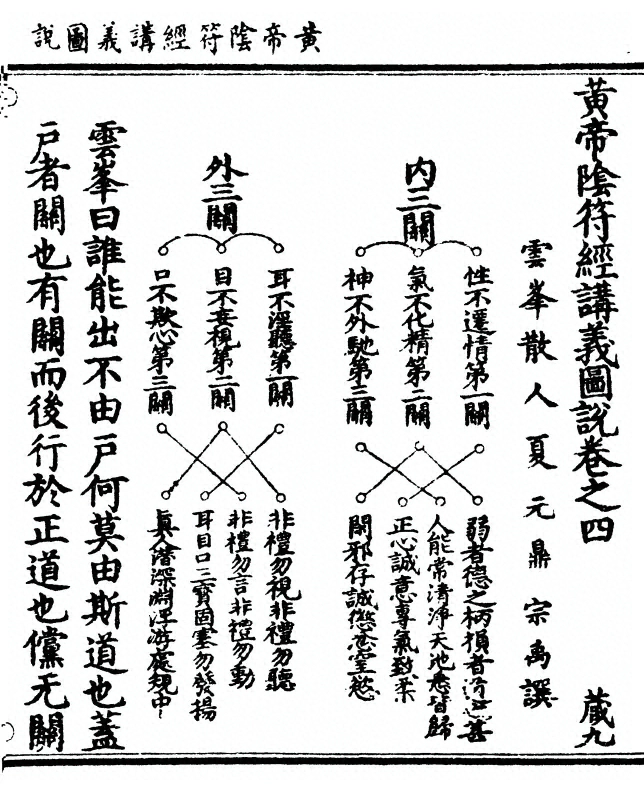 黃帝陰符經講義圖說
黃帝陰符經講義圖說卷之四
藏九
雲峯散人夏元鼎宗禹譔
內三關
性不遷情第一關
氣不化精第二關
神不外馳第三關
弱者德之柄損者
人能常清淨天地悉皆歸
正心誠意專氣致柔
閑邪存誠懲忿窒慾
外三關
耳不淫聽第一關
目不妄視第二關
口不欺心第三關
非禮勿視非禮勿聽
非禮勿言非禮勿動
耳目口三寶固塞勿發揚
眞人潛深淵浮游守規中
雲峯曰誰能出不由戶何莫由斯道也蓋
戶者關也有關而後行於正道也儻无關